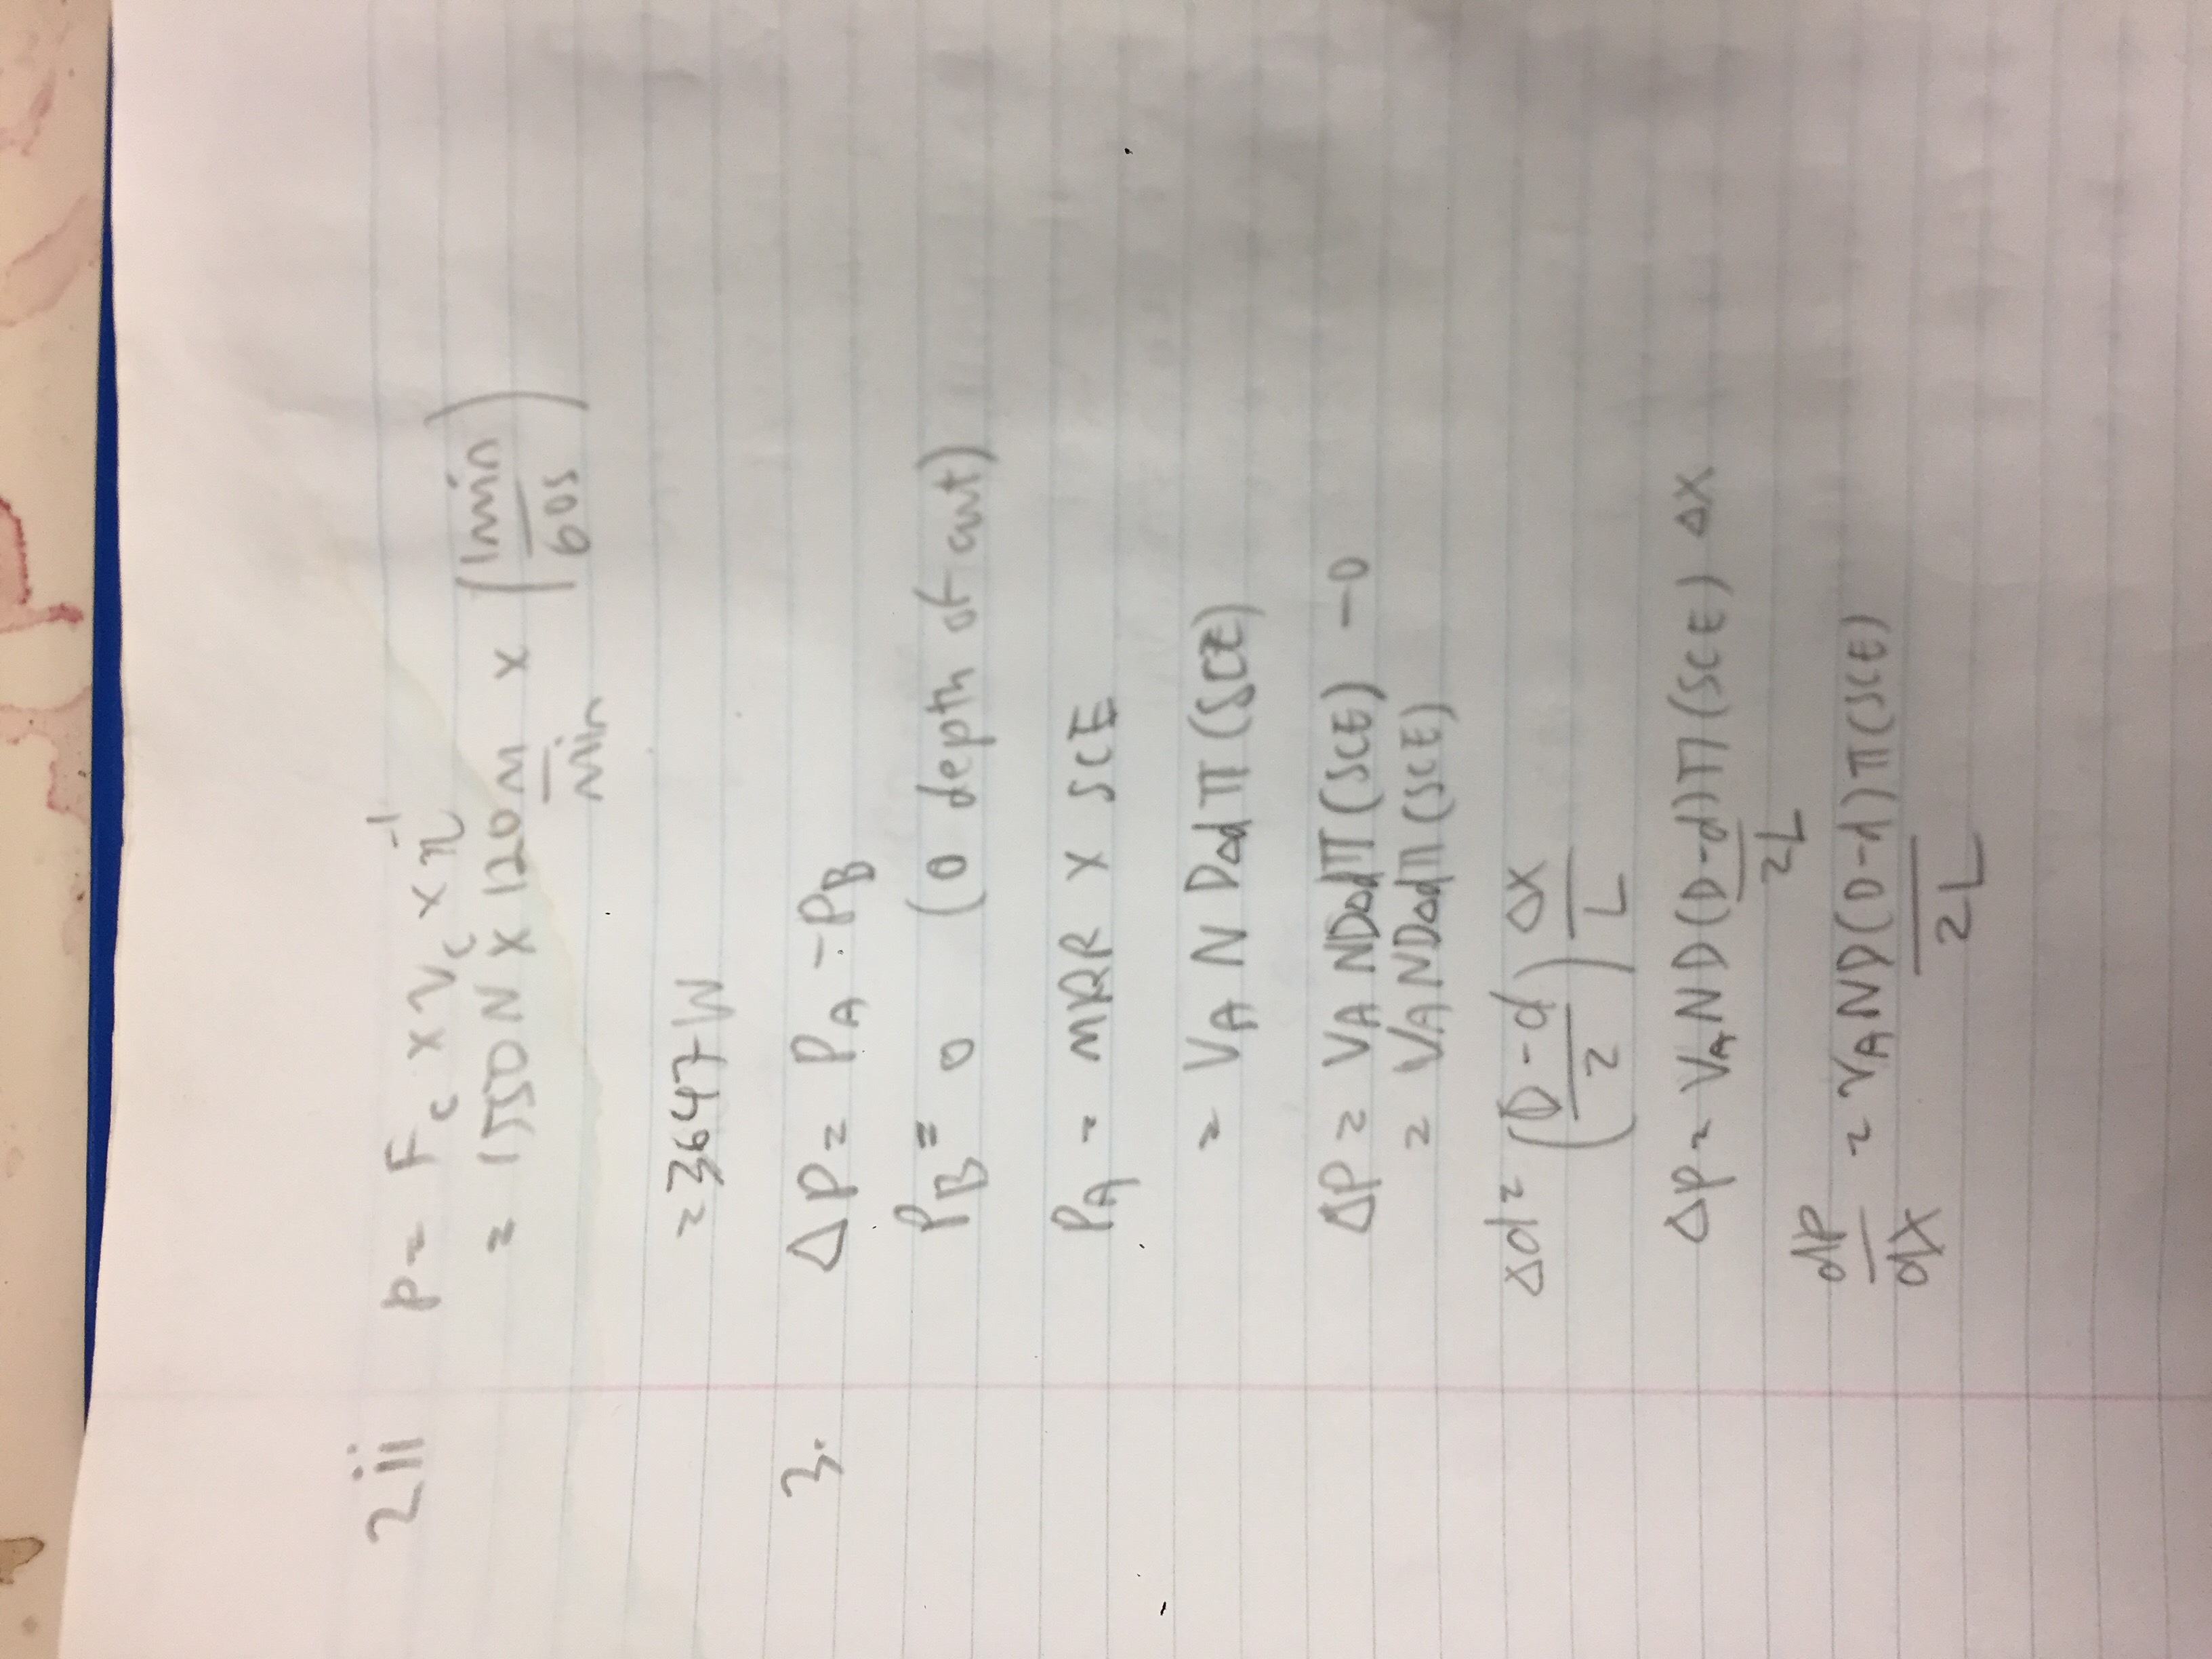 2ii P = Fc × Vc × η^-1
= 1550 N × 120 m/min × (1min/60s)
= 3647 W
3. ΔP = PA - PB
PB = 0 (0 depth of cut)
PA = MRR × SCE
= VA N DΔd π (SCE)
ΔP = VA NDΔdπ (SCE) - 0
= VANDΔdπ (SCE)
Δd = ((D-d)/2) Δx/L
ΔP = VAND(D-d)π(SCE) Δx / 2L
dP/dx = VAND(D-d)π(SCE) / 2L